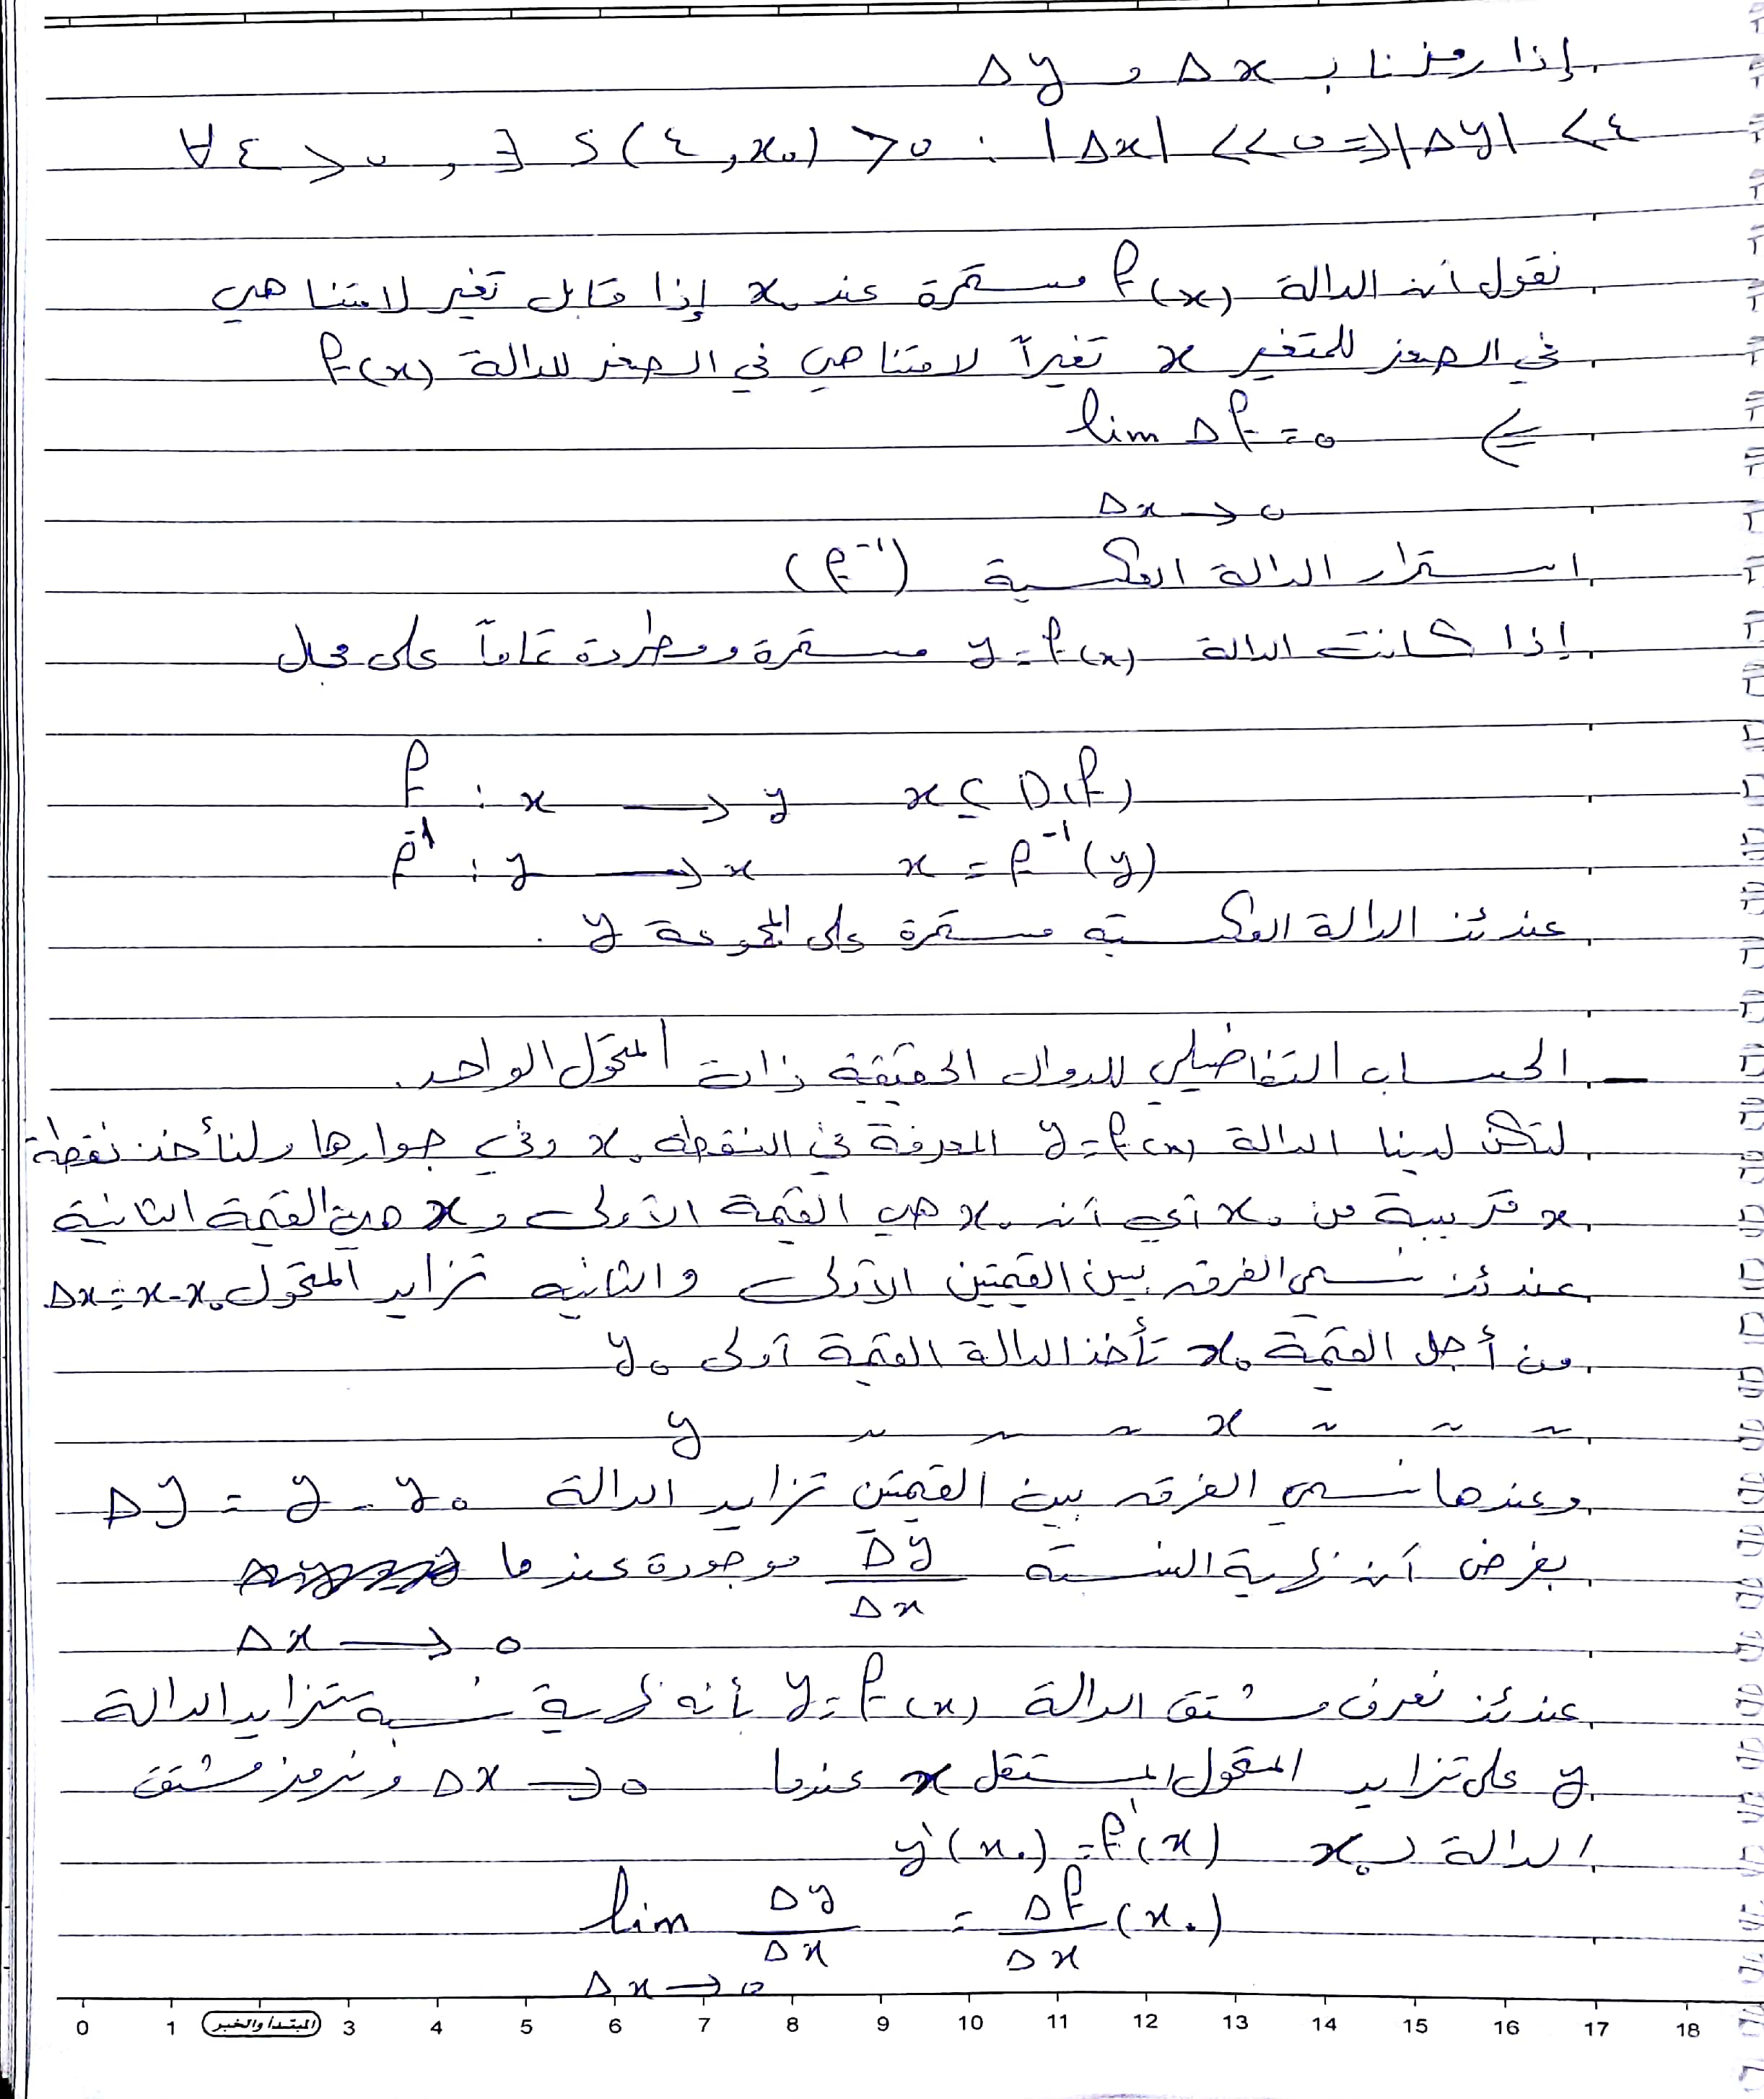 إذا رمزنا بـ Δx و Δy
∀ε > 0 , ∃ δ(ε, x₀) > 0 : |Δx| < δ ⇒ |Δy| < ε
نقول أن الدالة f(x) مستمرة عند x₀ إذا قابل تغير لامتناهي
في الصغر للمتغير x تغيراً لامتناهي في الصغر للدالة f(x)
⇐ lim Δf = 0
Δx → 0
استمرار الدالة العكسية (f⁻¹)
إذا كانت الدالة y = f(x) مستمرة ومطردة تماماً على مجال
f : x → y x ⊆ D(f)
f⁻¹ : y → x x = f⁻¹(y)
عندئذ الدالة العكسية مستمرة على المجموعة y .
- الحساب التفاضلي للدوال الحقيقية ذات المتحول الواحد.
لتكن لدينا الدالة y = f(x) المعرفة في النقطة x₀ وفي جوارها ولنأخذ نقطة
x قريبة من x₀ أي أن x₀ هي القيمة الأولى و x هي القيمة الثانية
عندئذ نسمي الفرق بين القيمتين الأولى والثانية تزايد المتحول Δx = x - x₀
من أجل القيمة x₀ تأخذ الدالة القيمة أولى y₀
~ ~ ~ x ~ ~ ~ y
وعندها نسمي الفرق بين القيمتين تزايد الدالة Δy = y - y₀
بفرض أن نهاية النسبة Δy/Δx موجودة عندما
Δx → 0
عندئذ نعرف مشتق الدالة y = f(x) بأنه نهاية نسبة تزايد الدالة
y على تزايد المتحول المستقل x عندما Δx → 0 ونرمز مشتق
الدالة لـ x₀ y'(x₀) = f'(x)
lim Δy/Δx = Δf/Δx (x₀)
Δx → 0
0 1 المبتدأ والخبر 3 4 5 6 7 8 9 10 11 12 13 14 15 16 17 18